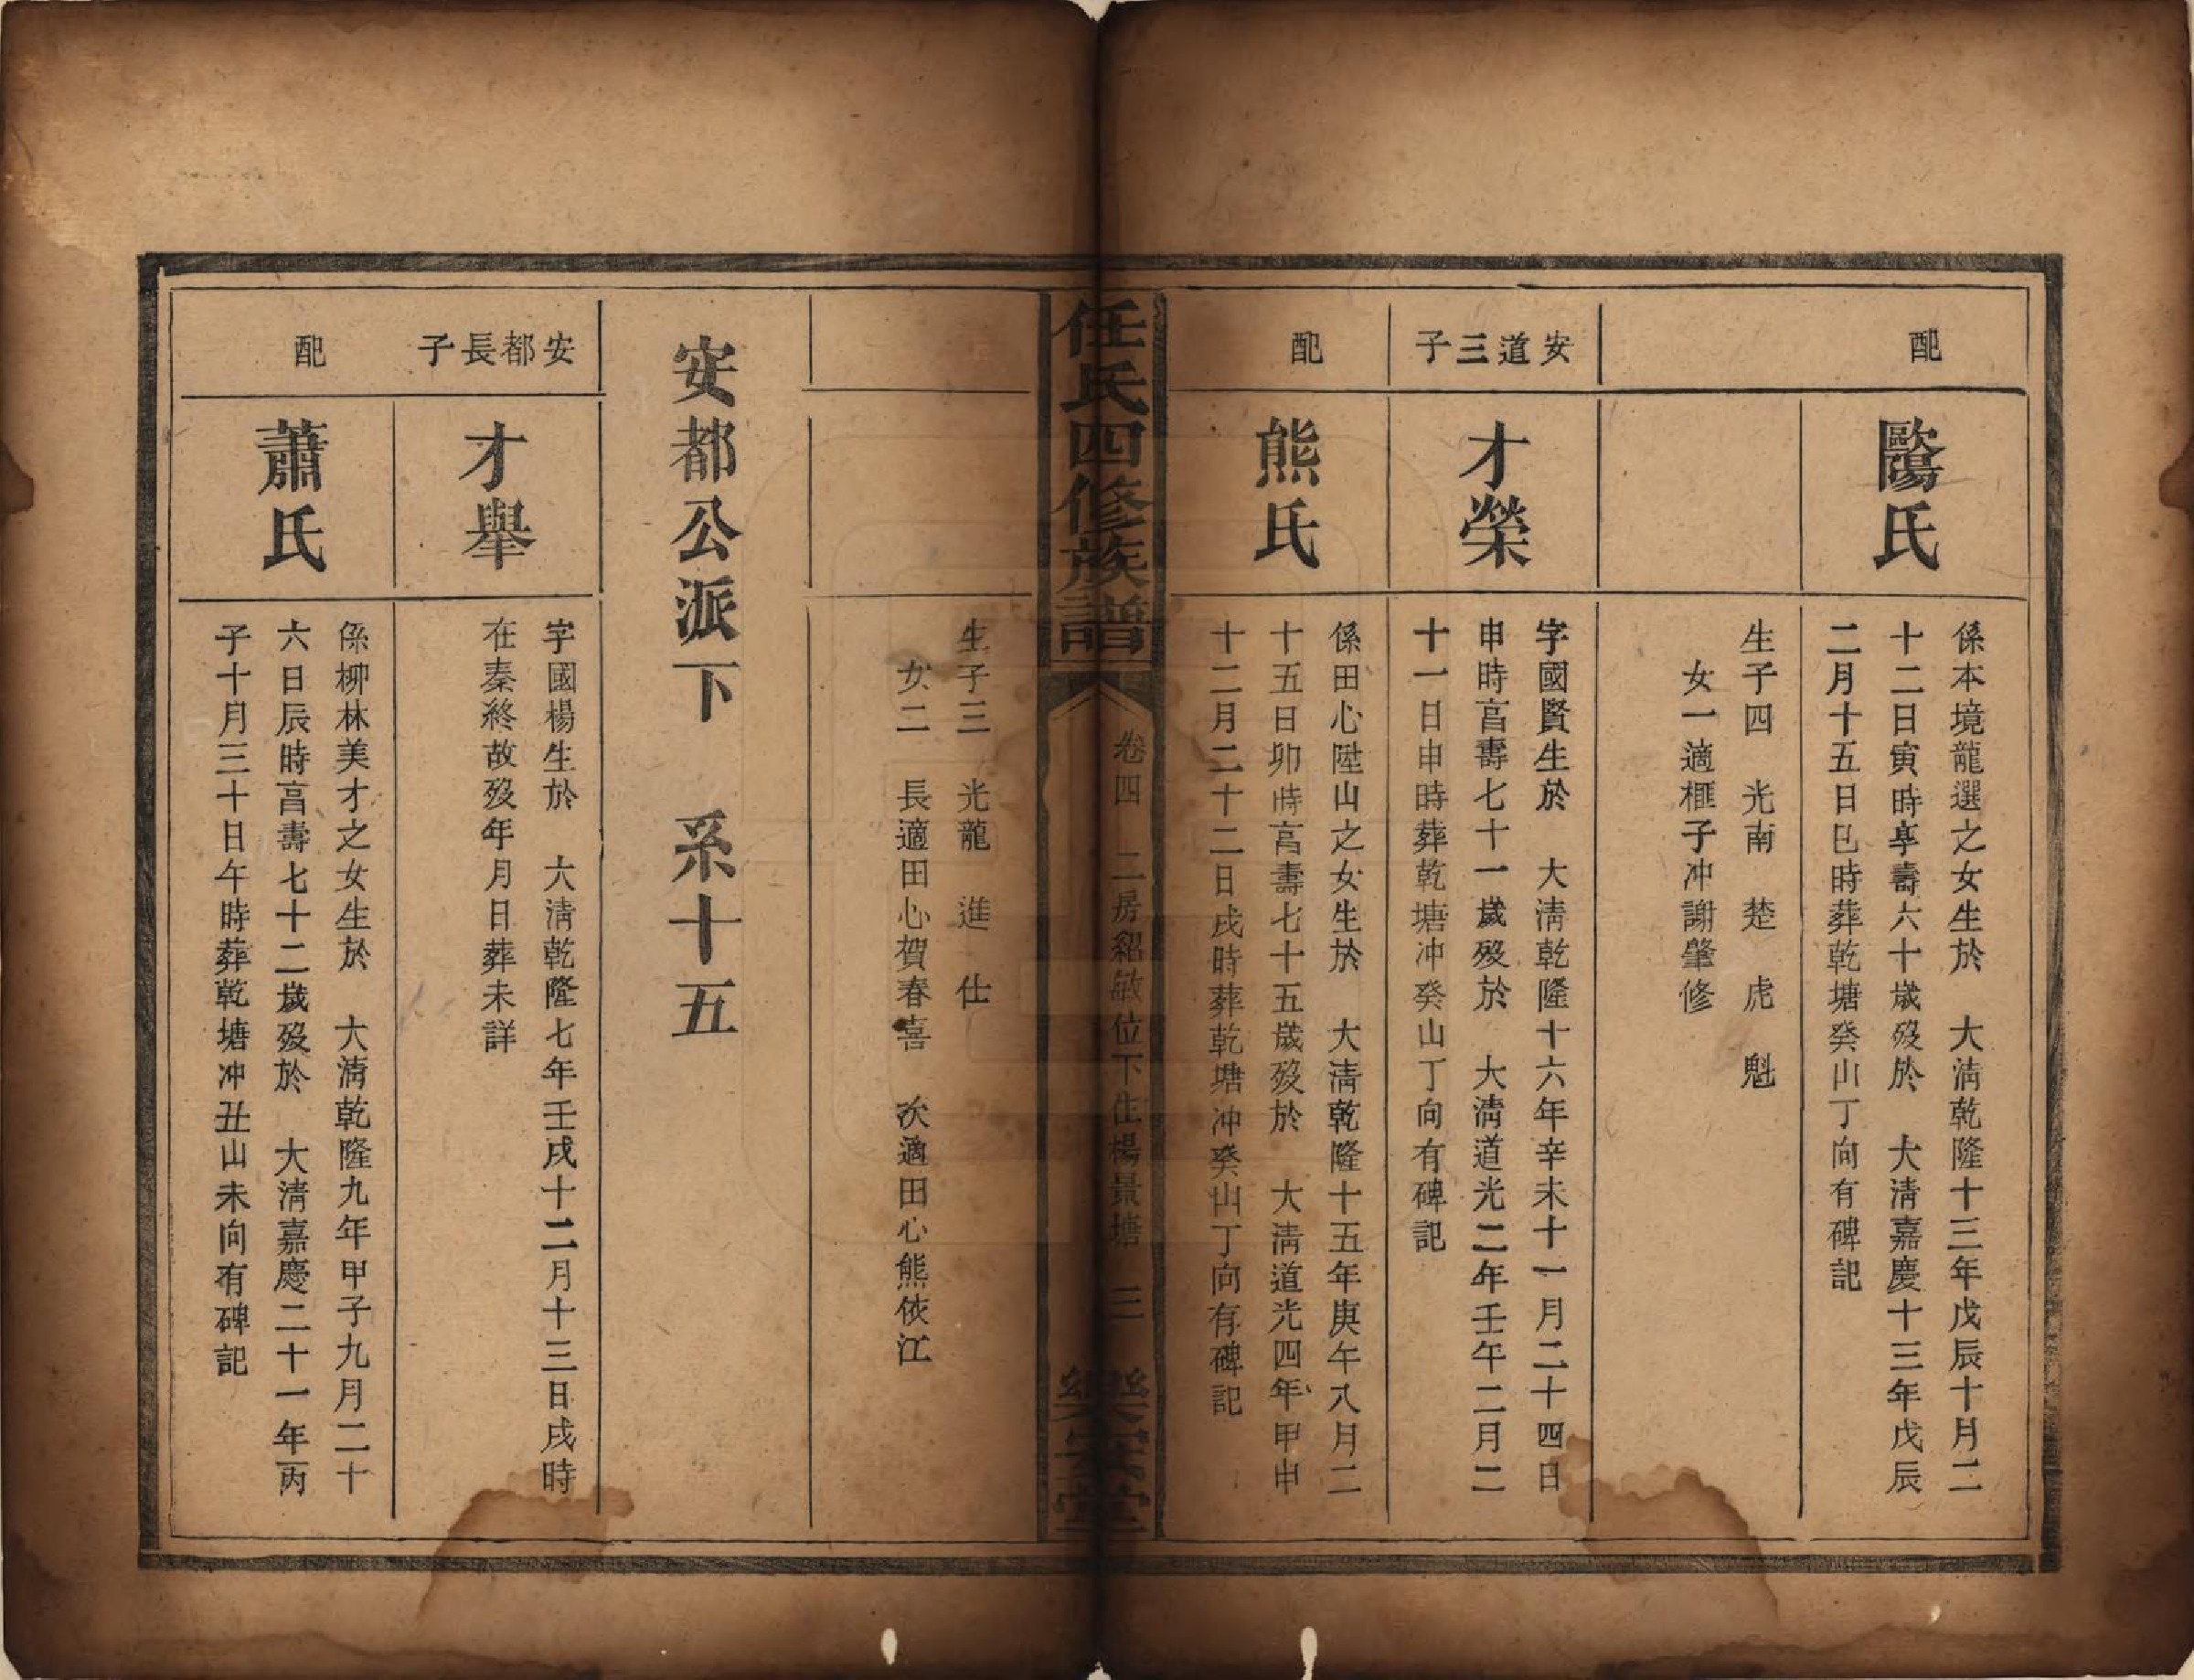 配
歐陽氏
係本境龍選之女生於　大清乾隆十三年戊辰十月二
十二日寅時享壽六十歲歿於　大清嘉慶十三年戊辰
二月十五日巳時葬乾塘癸山丁向有碑記
生子四　光南　楚　虎　魁
女一適榧子冲謝肇修
安道三子
才榮
字國賢生於　大清乾隆十六年辛未十一月二十四日
申時高壽七十一歲歿於　大清道光二年壬午二月二
十一日申時葬乾塘冲癸山丁向有碑記
配
熊氏
係田心陞山之女生於　大清乾隆十五年庚午八月二
十五日卯時高壽七十五歲歿於　大清道光四年甲申
十二月二十二日戌時葬乾塘冲癸山丁向有碑記
任氏四修族譜
卷四　二房紹敏位下住楊景塘　三
樂安堂
生子三　光龍　進　仕
女二　長適田心賀春喜　次適田心熊依江
安都公派下　系十五
安都長子
才舉
字國楊生於　大清乾隆七年壬戌十二月十三日戌時
在秦終故歿年月日葬未詳
配
蕭氏
係柳林美才之女生於　大清乾隆九年甲子九月二十
六日辰時高壽七十二歲歿於　大清嘉慶二十一年丙
子十月三十日午時葬乾塘冲丑山未向有碑記